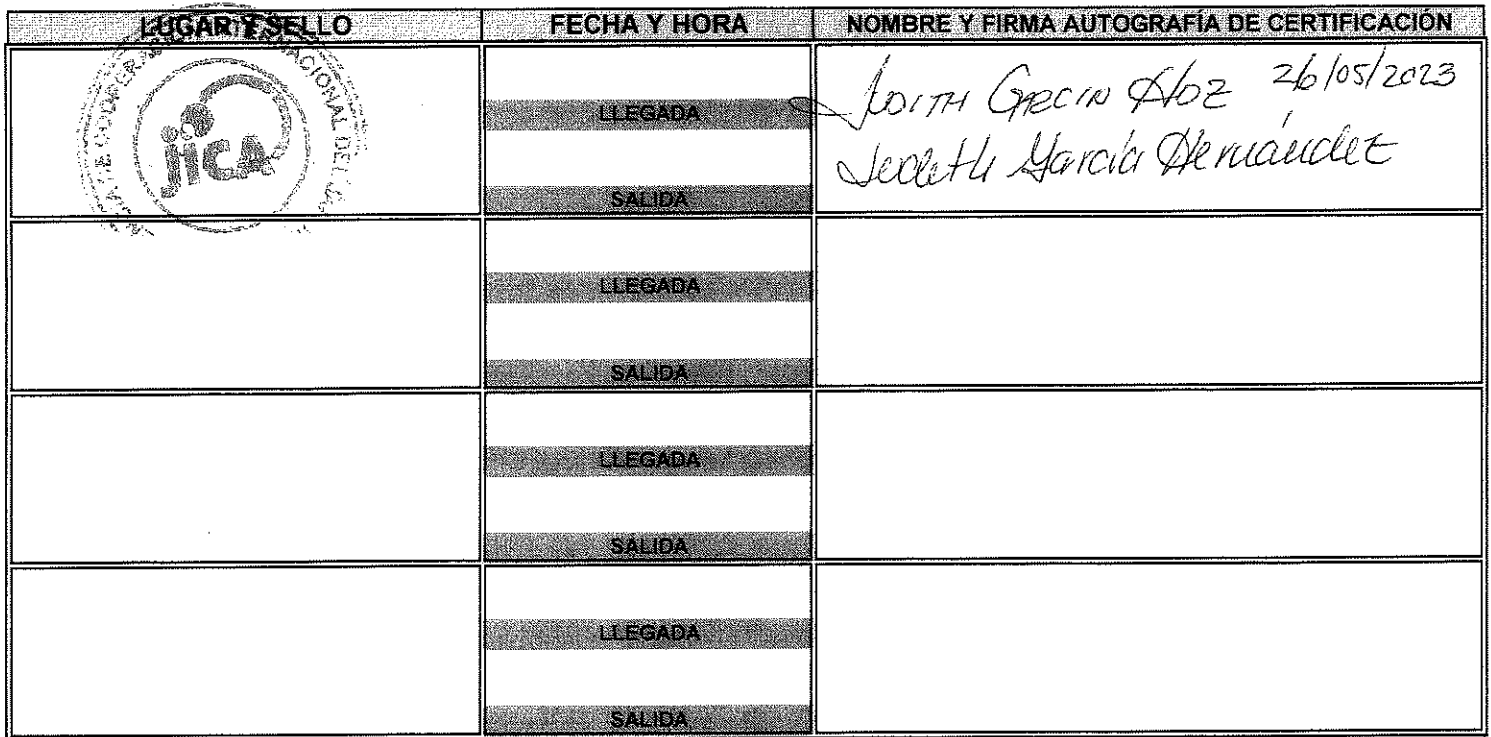 LUGAR Y SELLO FECHA Y HORA NOMBRE Y FIRMA AUTOGRAFÍA DE CERTIFICACIÓN
jica
LLEGADA
26/05/2023
Judeth García Hernández
SALIDA
LLEGADA
SALIDA
LLEGADA
SALIDA
LLEGADA
SALIDA